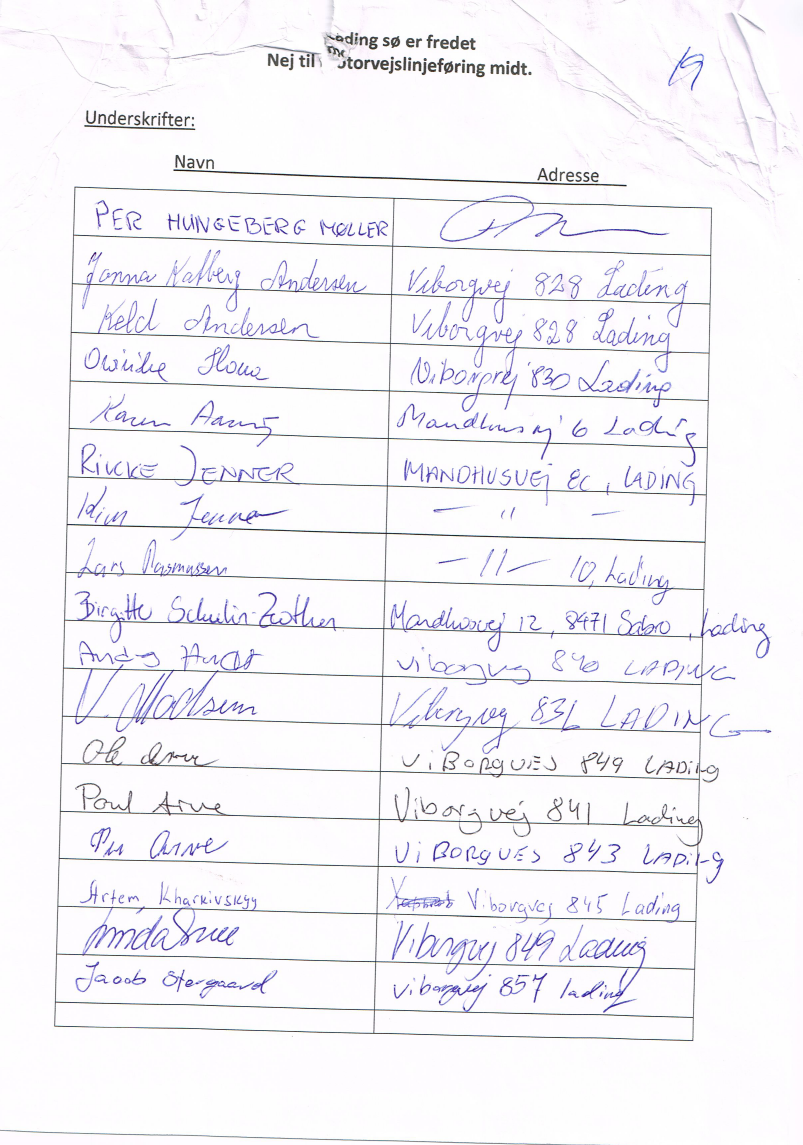 ading sø er fredet
Nej til torvejslinjeføring midt.
19
Underskrifter:
Navn Adresse
PER HUNGEBERG MØLLER
Janna Kalberg Andersen Viborgvej 828 Lading
Keld Andersen Viborgvej 828 Lading
Viborgvej 830 Lading
Karen Mandhusvej 6 Lading
RIKKE JENNER MANDHUSVEJ 8C, LADING
Kim Jenner — " —
Lars Rasmussen — 11 — 10, Lading
Birgitte Schulin-Zeuthen Mandhusvej 12, 8471 Sabro, Lading
Viborgvej 840 LADING
V. Madsen Viborgvej 831 LADING
Ole ViBORGVEJ 849 LADING
Poul Arve Viborgvej 841 Lading
ViBORGVEJ 843 LADING
Artem, Kharkivskyy Viborgvej 845 Lading
Viborgvej 849 Lading
Jacob Østergaard Viborgvej 857 lading